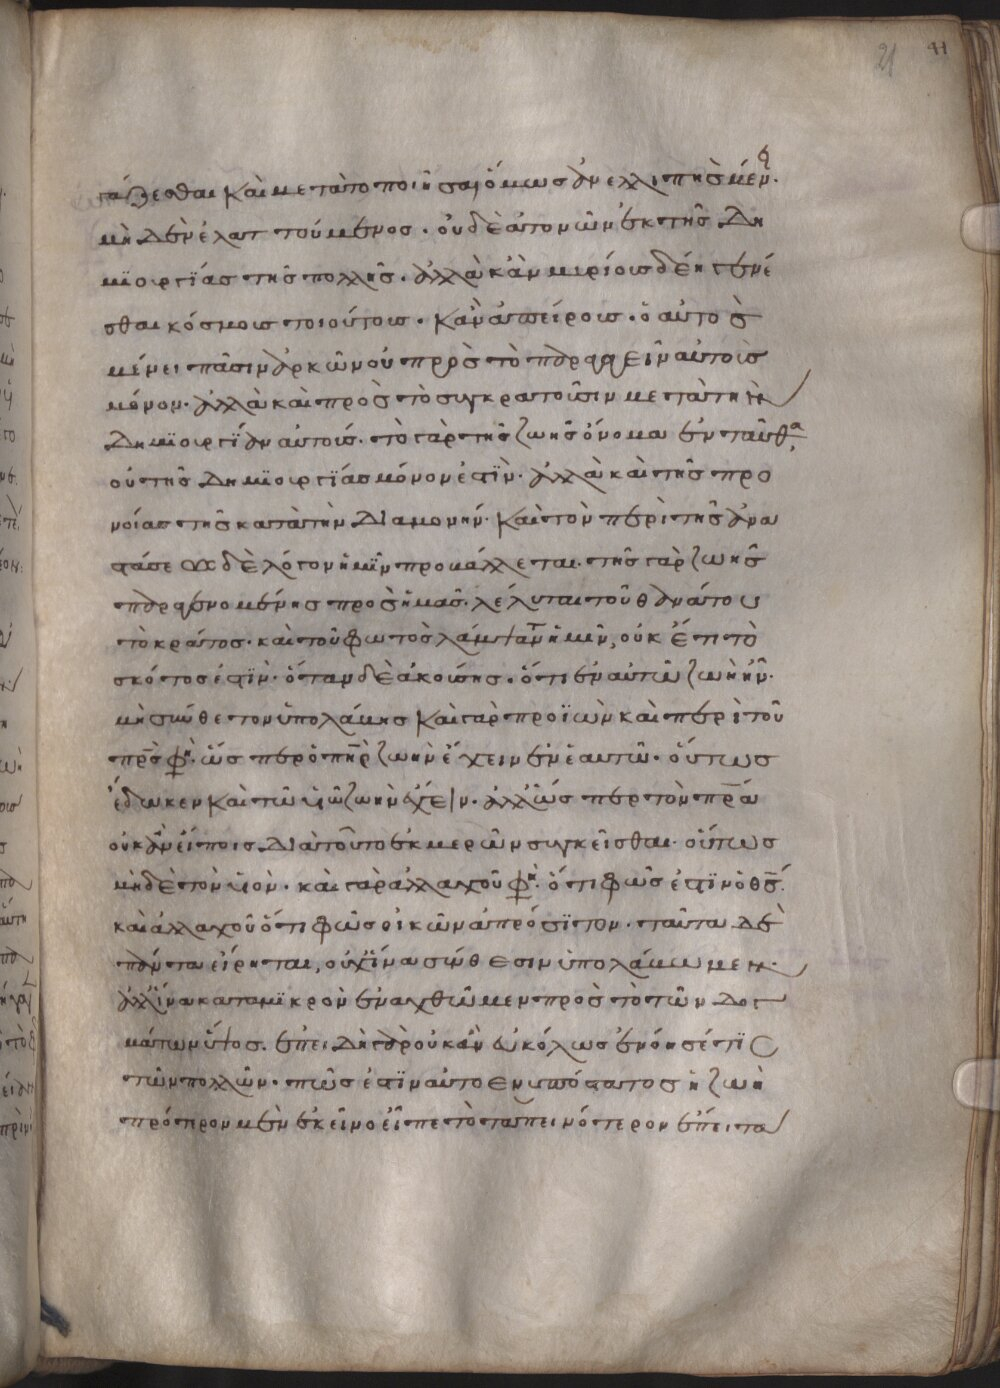 21 41
ταύζεσθαι καὶ μετὰ τὸ ποιῆσαι ὅμως ἀνελλιπὴς μέν.
μηδὲν ἐλαττούμενος. οὐδὲ ἀτονῶν ἐκ τῆς δη
μϊουργΐας τῆς πολλῆς. ἀλλὰ κἂν μυρίοις δέη γενέ
σθαι κόσμοις τοιούτοις. κἂν ἀπείροις. ὁ αὐτὸς
μένει πᾶσιν ἀρκῶν οὐ πρὸς τὸ παραγαγεῖν αὐτοὺς
μόνον. ἀλλὰ καὶ πρὸς τὸ συγκροτοῦσιν μετὰ τὴν
δημϊουργΐαν αὐτούς. τὸ γὰρ τῆς ζωῆς ὄνομα ἐνταῦθα,
οὐ τῆς δημϊουργΐας μόνον ἐστὶν. ἀλλὰ καὶ τῆς προ
νοίας τῆς κατὰ τὴν διαμονήν. καὶ τὸν περὶ τῆς ἀνα
στάσεως δὲ λόγον ἡμῖν προκαταβάλλεται. τῆς γὰρ ζωῆς
παραγενομένης πρὸς ἡμᾶς. λέλυται τοῦ θανάτου
τὸ κράτος. καὶ τοῦ φωτὸς λάμψαντος ἡμῖν, οὐκ ἔτι τὸ
σκότος ἐστὶν. ὅταν δὲ ἀκούσης. ὅτι ἐν αὐτῶ ζωὴ ἦν.
μὴ σύνθετον ὑπολάβης καὶ γὰρ προϊὼν καὶ περὶ τοῦ
πρς φη. ὥσπερ ὁ πηρ ζωὴν ἔχει ἐν ἑαυτῶ. οὕτως
ἔδωκεν καὶ τῶ υἱῶ ζωὴν ἔχειν. ἀλλ' ὥσπερ τὸν πρα
οὐκ ἂν εἴποις διὰ τοῦτο ἐκ μερῶν συγκεῖσθαι. οὕτως
μηδὲ τὸν υἱόν. καὶ γὰρ ἀλλαχοῦ φη. ὅτι φῶς ἐστὶν ὁ θς.
καὶ ἀλλαχοῦ ὅτι φῶς οἰκῶν ἀπρόσϊτον. ταῦτα δὲ
πάντα εἴρηται, οὐχ ἵνα σύνθεσιν ὑπολάβωμεν.
ἀλλ' ἵνα κατὰ μϊκρὸν ἐναχθῶμεν πρὸς τὸ τῶν δογ
μάτων ὕψος. ἐπειδὴ γὰρ οὐκ ἂν εὐκόλως ἐνόησέ τϊς
τῶν πολλῶν. πῶς ἐστὶν αὐτοενυπόστατος ἡ ζωὴ
πρότερον μὲν ἐκεῖνο εἶπε τὸ ταπεινότερον ἔπειτα